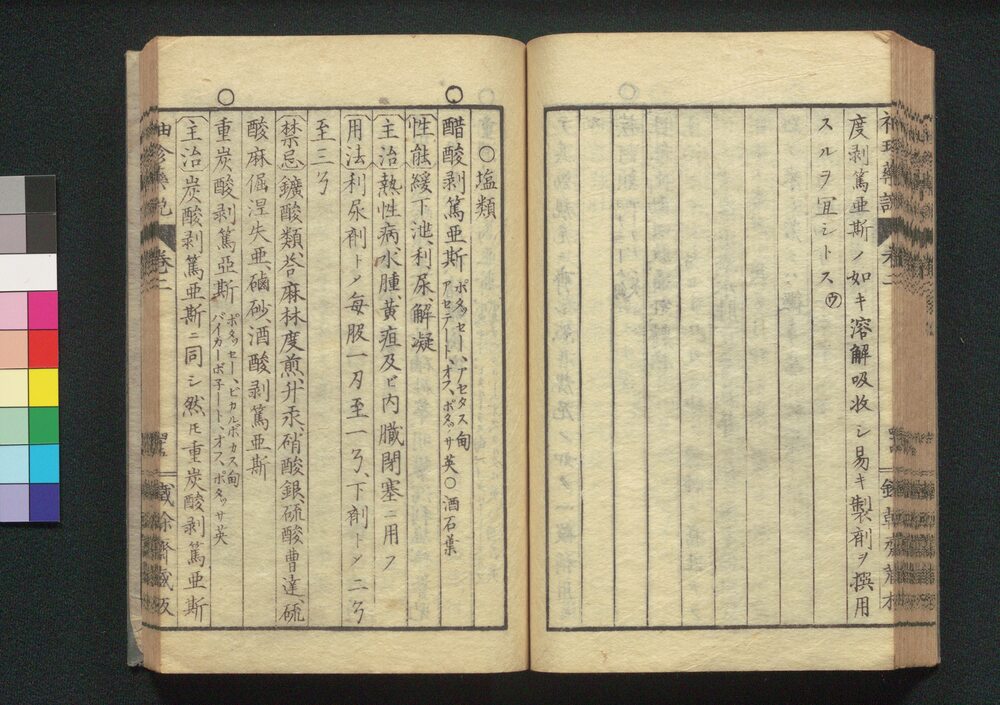 度剥篤亜斯ノ如キ溶解吸收シ易キ製剤ヲ撰用
スルヲ冝シトス
○塩類
醋酸剥篤亜斯 ポタッセー、アセタス甸 アセテート、オフ、ポタッサ英 ○酒石葉
性能 緩下、泄、利尿、解凝
主治 熱性病、水腫、黄疸及ビ内臓閉塞ニ用フ
用法 利尿剤トノ毎服一刄至一ㄋ、下剤トノ二ㄋ
至三ㄋ
禁忌 鑛酸類、荅麻林度煎、升汞、硝酸銀、硫酸曹達、硫
酸麻倔涅失亜、磠砂、酒酸剥篤亜斯
重炭酸剥篤亞斯 ポタッセー、ビカルボカス甸 バイカーボ子ート、オフ、ポタッサ英
主治 炭酸剥篤亜斯ニ同シ然モ重炭酸剥篤亜斯
袖珍藥説 卷二